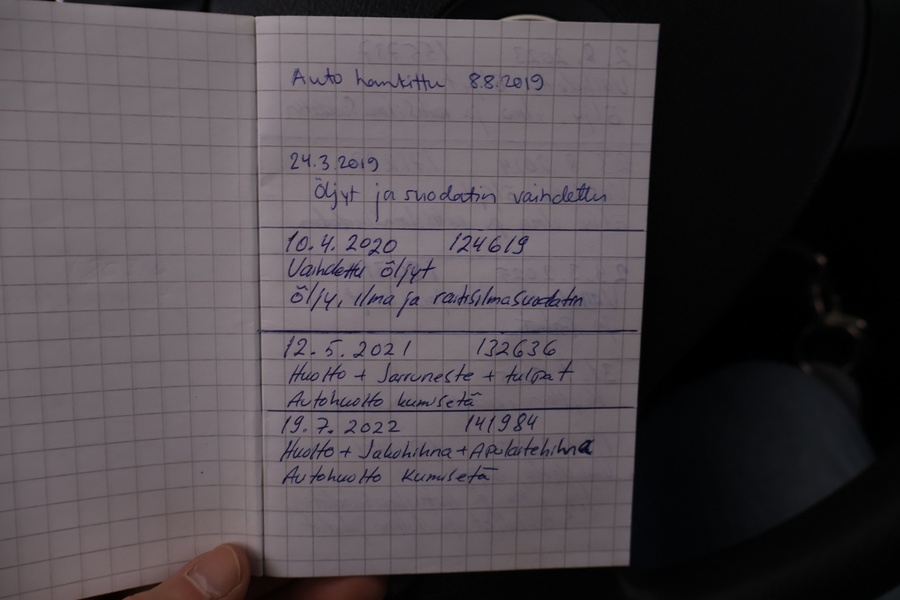 Auto hankittu 8.8.2019
24.3.2019
Öljyt ja suodatin vaihdettu
10.4.2020 124619
Vaihdettu öljyt
öljy, ilma ja raitisilmasuodatin
12.5.2021 132636
Huolto + Jarruneste + tulpat
Autohuolto kumisetä
19.7.2022 141984
Huolto + Jakohihna + Apulaitehihna
Autohuolto kumisetä